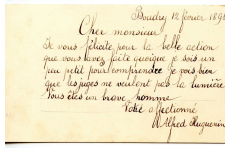 Boudry, 12 février 189
Cher monsieur,
Je vous félicite pour la belle action
que vous avez faite quoique je sois un
peu petit pour comprendre je vois bien
que les juges ne veulent pas la lumière
Vous êtes un brave homme.
Votre affectionné
Alfred Huguenin